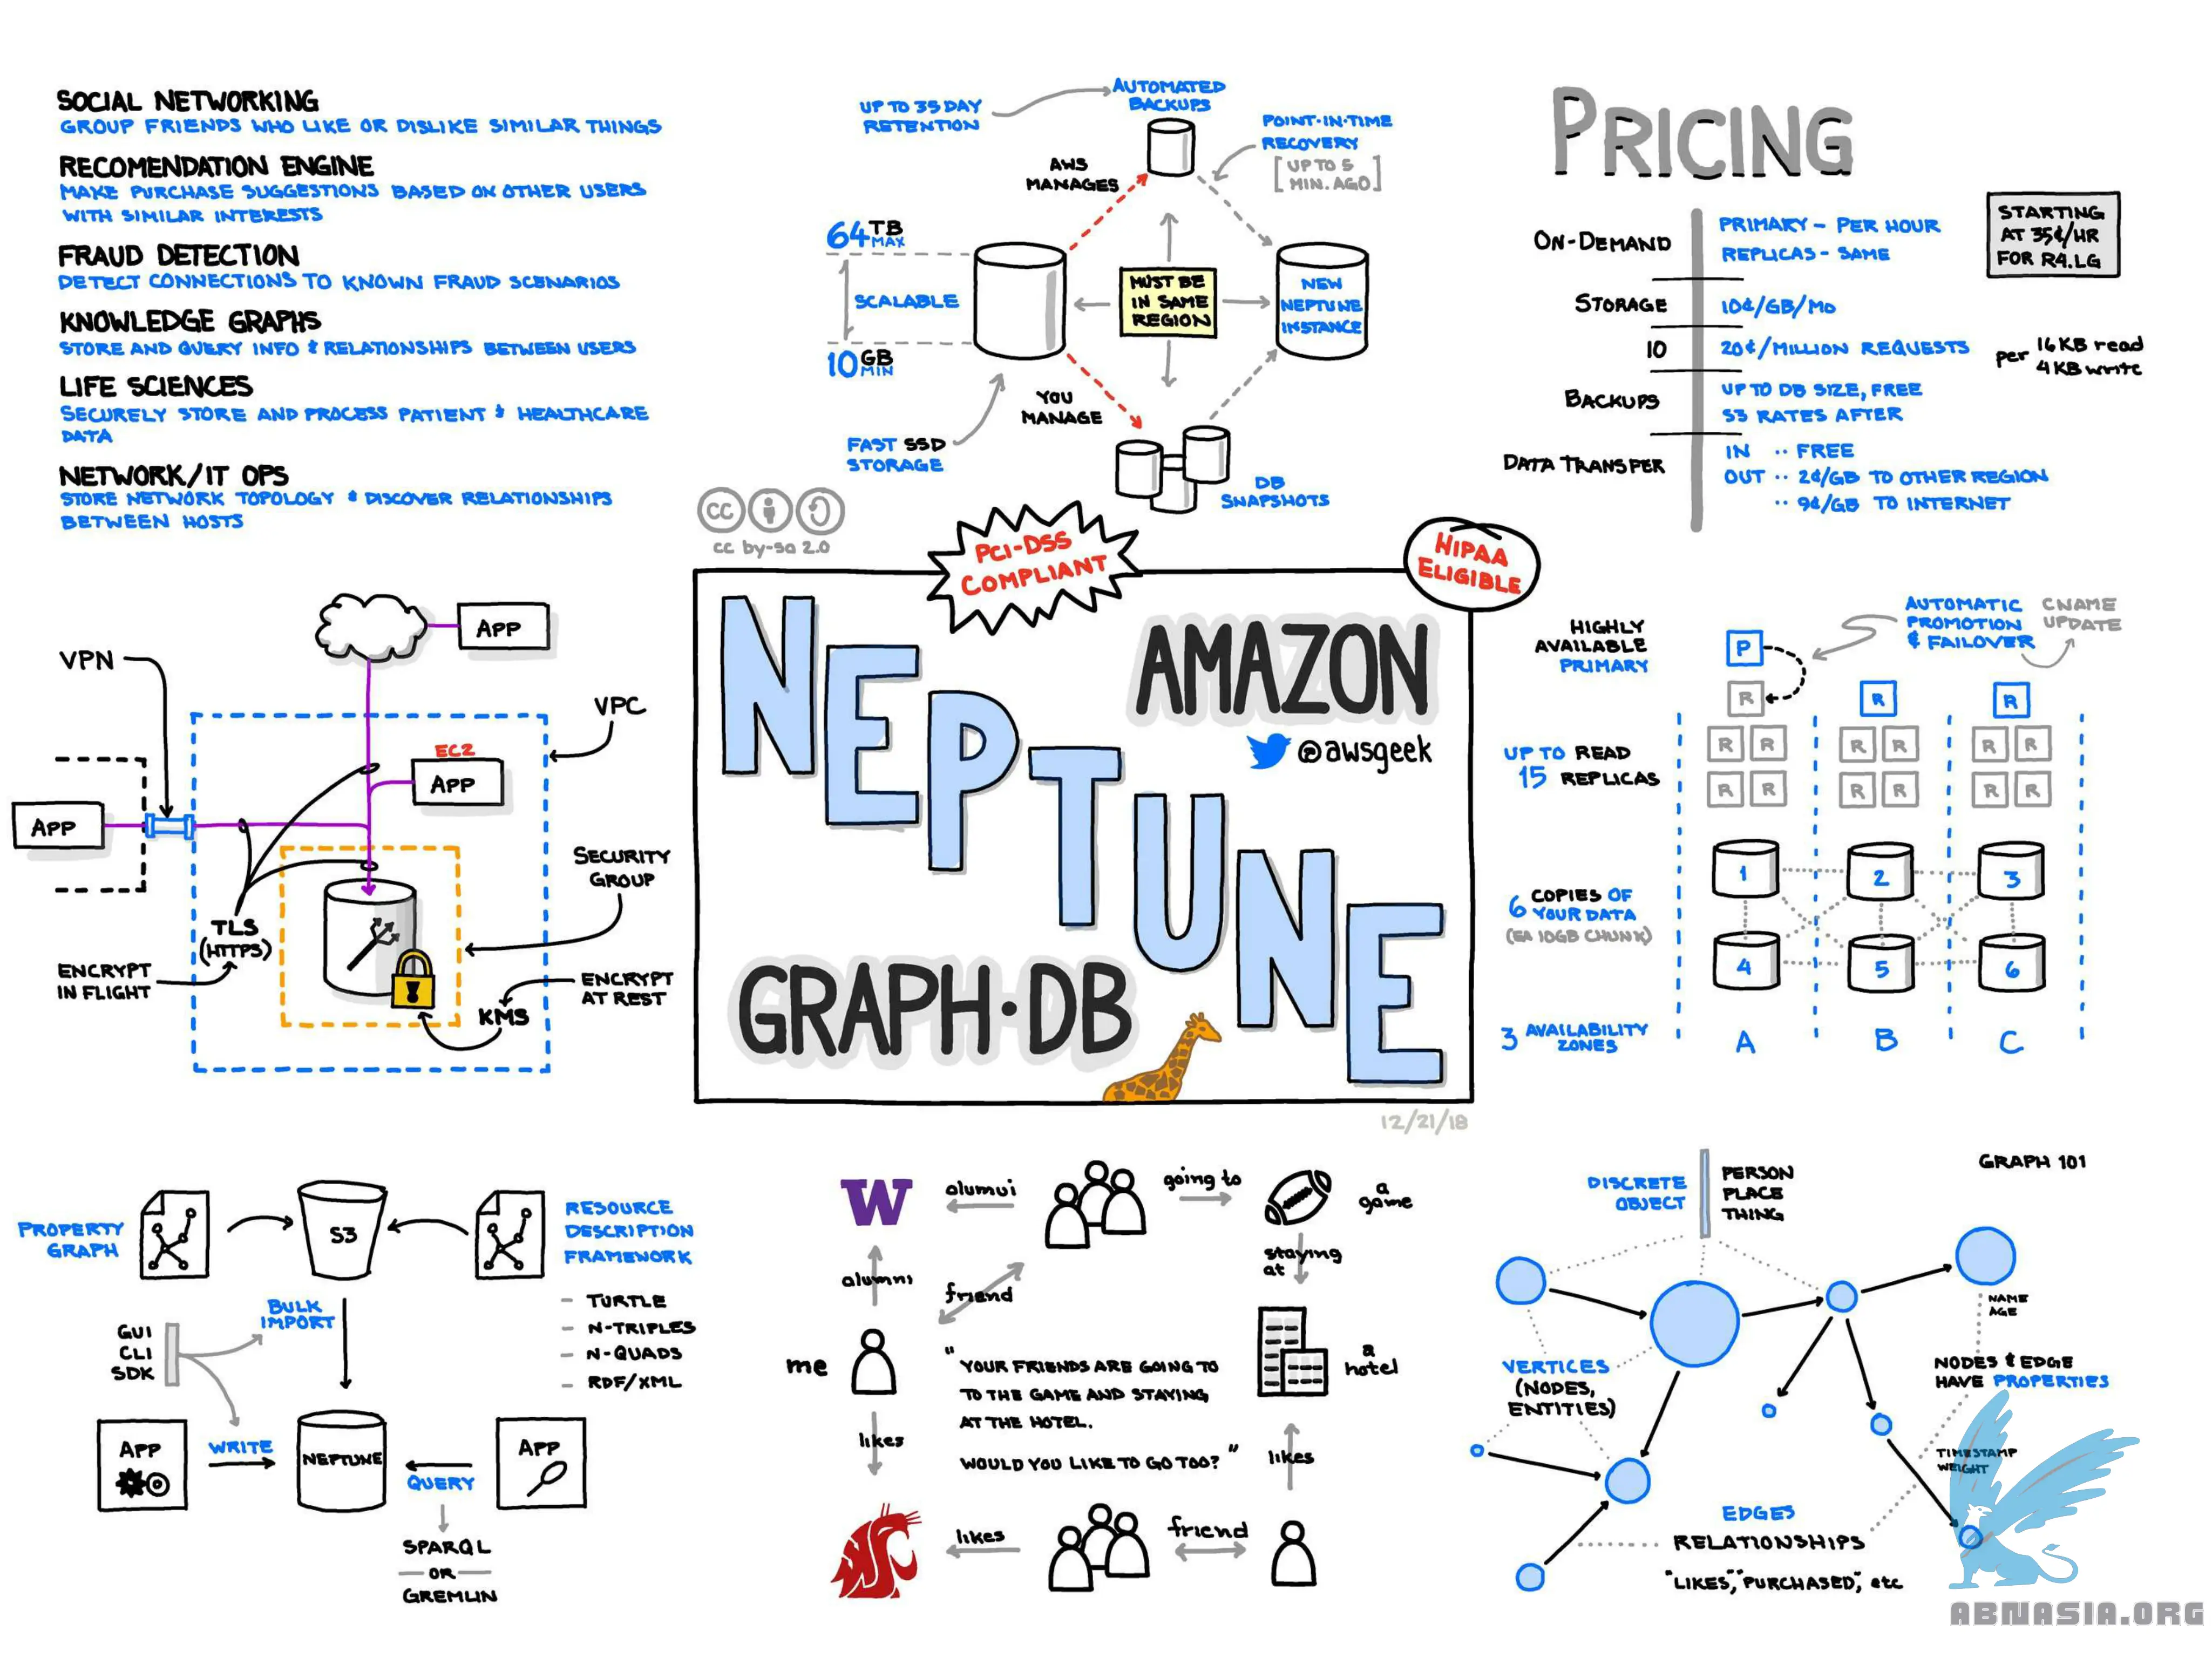 SOCIAL NETWORKING
GROUP FRIENDS WHO LIKE OR DISLIKE SIMILAR THINGS
RECOMENDATION ENGINE
MAKE PURCHASE SUGGESTIONS BASED ON OTHER USERS
WITH SIMILAR INTERESTS
FRAUD DETECTION
DETECT CONNECTIONS TO KNOWN FRAUD SCENARIOS
KNOWLEDGE GRAPHS
STORE AND QUERY INFO & RELATIONSHIPS BETWEEN USERS
LIFE SCIENCES
SECURELY STORE AND PROCESS PATIENT & HEALTHCARE
DATA
NETWORK/IT OPS
STORE NETWORK TOPOLOGY & DISCOVER RELATIONSHIPS
BETWEEN HOSTS
UP TO 35 DAY
RETENTION
AUTOMATED
BACKUPS
POINT-IN-TIME
RECOVERY
[UP TO 5
MIN. AGO]
AWS
MANAGES
64 TB
MAX
SCALABLE
10 GB
MIN
MUST BE
IN SAME
REGION
NEW
NEPTUNE
INSTANCE
YOU
MANAGE
FAST SSD
STORAGE
DB
SNAPSHOTS
PRICING
STARTING
AT 35¢/HR
FOR R4.LG
ON-DEMAND
PRIMARY - PER HOUR
REPLICAS - SAME
STORAGE
10¢/GB/MO
IO
20¢/MILLION REQUESTS
per 16 KB read
4 KB write
BACKUPS
UP TO DB SIZE, FREE
S3 RATES AFTER
DATA TRANSFER
IN .. FREE
OUT .. 2¢/GB TO OTHER REGION
.. 9¢/GB TO INTERNET
cc
cc by-sa 2.0
PCI-DSS
COMPLIANT
HIPAA
ELIGIBLE
AMAZON
NEPTUNE
@awsgeek
GRAPH·DB
12/21/18
VPN
APP
VPC
EC2
APP
APP
SECURITY
GROUP
TLS
(HTTPS)
ENCRYPT
IN FLIGHT
ENCRYPT
AT REST
KMS
HIGHLY
AVAILABLE
PRIMARY
AUTOMATIC
PROMOTION
& FAILOVER
CNAME
UPDATE
P
R
R
R
UP TO READ
15 REPLICAS
R R R R R R
R R R R R R
6 COPIES OF
YOUR DATA
(EA 10GB CHUNK)
1 2 3
4 5 6
3 AVAILABILITY
ZONES
A B C
PROPERTY
GRAPH
S3
RESOURCE
DESCRIPTION
FRAMEWORK
- TURTLE
- N-TRIPLES
- N-QUADS
- RDF/XML
BULK
IMPORT
GUI
CLI
SDK
APP
WRITE
NEPTUNE
QUERY
APP
SPARQL
- OR -
GREMLIN
W
alumni
going to
a
game
alumni
friend
staying
at
me
a
hotel
" YOUR FRIENDS ARE GOING TO
TO THE GAME AND STAYING
AT THE HOTEL.
WOULD YOU LIKE TO GO TOO? "
likes
likes
likes
friend
GRAPH 101
DISCRETE
OBJECT
PERSON
PLACE
THING
NAME
AGE
VERTICES
(NODES,
ENTITIES)
NODES & EDGE
HAVE PROPERTIES
TIMESTAMP
WEIGHT
EDGES
RELATIONSHIPS
"LIKES", "PURCHASED", etc
ABNASIA.ORG